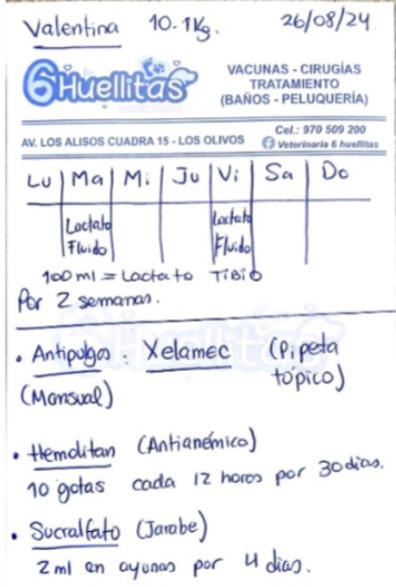 Valentina 10.1Kg. 26/08/24.
6 Huellitas
VACUNAS - CIRUGÍAS
TRATAMIENTO
(BAÑOS - PELUQUERÍA)
AV. LOS ALISOS CUADRA 15 - LOS OLIVOS
Cel.: 970 509 200
Veterinaria 6 huellitas
Lu Ma Mi Ju Vi Sa Do
Lactato Lactato
Fluido Fluido
100 ml = Lactato TiBiO
Por 2 semanas.
• Antipulgas : Xelamec (Pipeta
tópico)
(Mensual)
• Hemolitan (Antianémico)
10 gotas cada 12 horas por 30 dias.
• Sucralfato (Jarabe)
2 ml en ayunas por 4 dias.